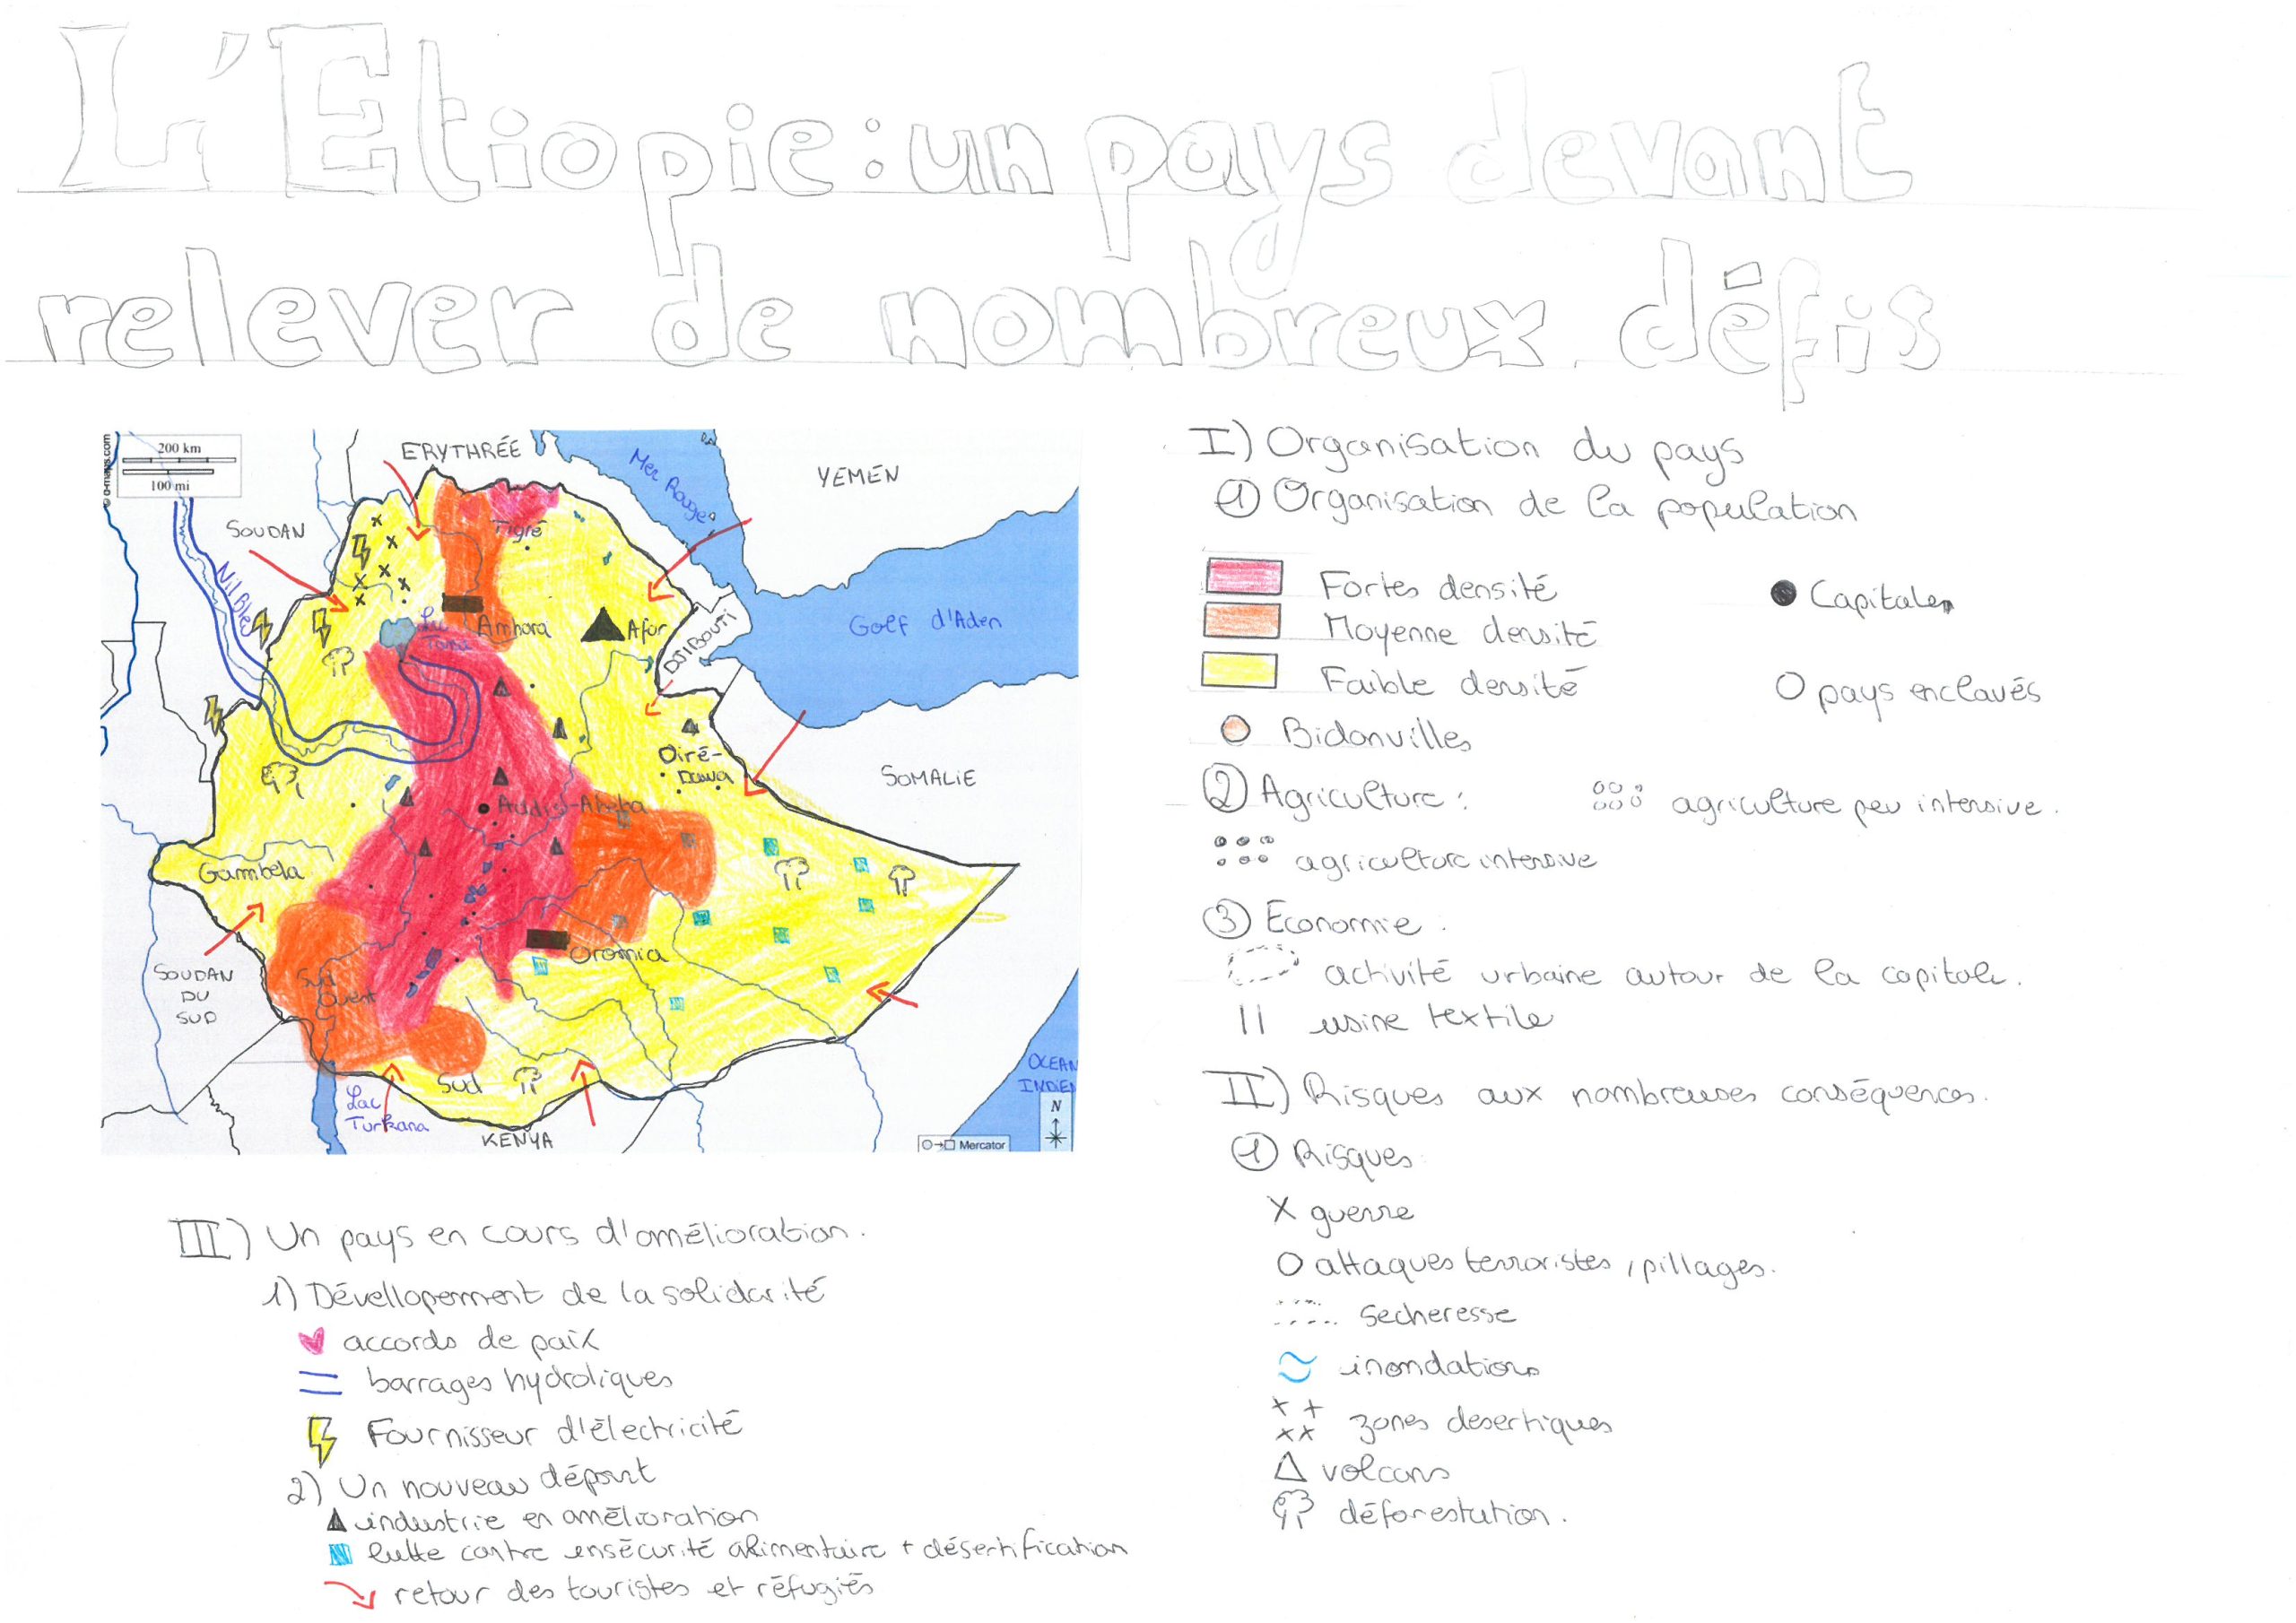 L'Etiopie : un pays devant
relever de nombreux défis
© d-maps.com
200 km
100 mi
ERYTHRÉE
YEMEN
Mer Rouge
SOUDAN
Nil Bleu
Tigré
Amhara
Afar
DJIBOUTI
Golf d'Aden
Diré-
Dawa
SOMALIE
Addis-Abeba
Gambela
Oromia
SOUDAN
DU
SUD
Sud
Ouest
Sud
Lac
Turkana
KENYA
OCEAN
INDIEN
N
Mercator
I) Organisation du pays
① Organisation de la population
Fortes densité
Moyenne densité
Faible densité
Bidonvilles
Capitale
pays enclavés
② Agriculture :
agriculture peu intensive.
agriculture intensive
③ Economie.
activité urbaine autour de la capitale.
usine textile
II) Risques aux nombreuses conséquences.
① Risques
guerre
attaques terroristes, pillages.
secheresse
inondations
zones desertiques
volcans
déforestation.
III) Un pays en cours d'amélioration.
1) Dévellopement de la solidarité
accords de paix
barrages hydroliques
Fournisseur d'électricité
2) Un nouveau départ
industrie en amélioration
lutte contre insécurité alimentaire + désertification
retour des touristes et réfugiés